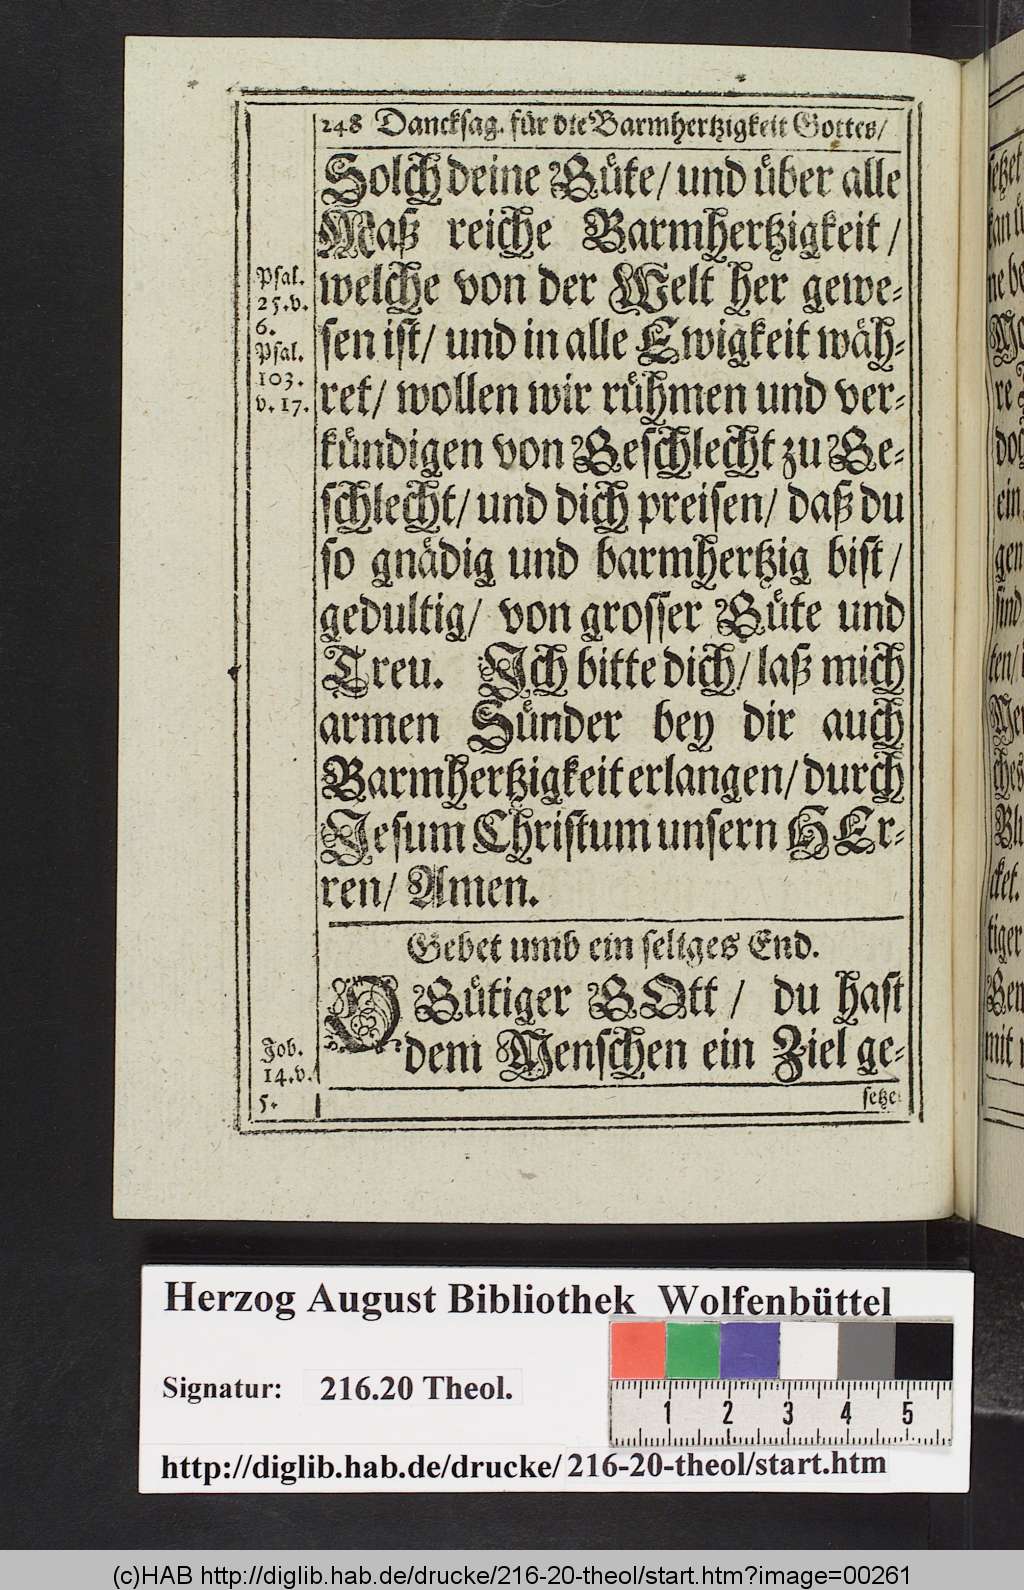 248 Dancksag. für die Barmhertzigkeit Gottes/
Solch deine Güte/ und über alle
Maß reiche Barmhertzigkeit/
welche von der Welt her gewe-
sen ist/ und in alle Ewigkeit wäh-
ret/ wollen wir rühmen und ver-
kündigen von Geschlecht zu Ge-
schlecht/ und dich preisen/ daß du
so gnädig und barmhertzig bist/
gedultig/ von grosser Güte und
Treu. Ich bitte dich/ laß mich
armen Sünder bey dir auch
Barmhertzigkeit erlangen/ durch
Jesum Christum unsern HEr-
ren/ Amen.
Psal.
25.v.
6.
Psal.
103.
v.17.
Gebet umb ein seliges End.
O Gütiger GOtt/ du hast
dem Menschen ein Ziel ge-
Job.
14.v.
5.
setze
Herzog August Bibliothek Wolfenbüttel
Signatur: 216.20 Theol.
1 2 3 4 5
http://diglib.hab.de/drucke/216-20-theol/start.htm
(c)HAB http://diglib.hab.de/drucke/216-20-theol/start.htm?image=00261